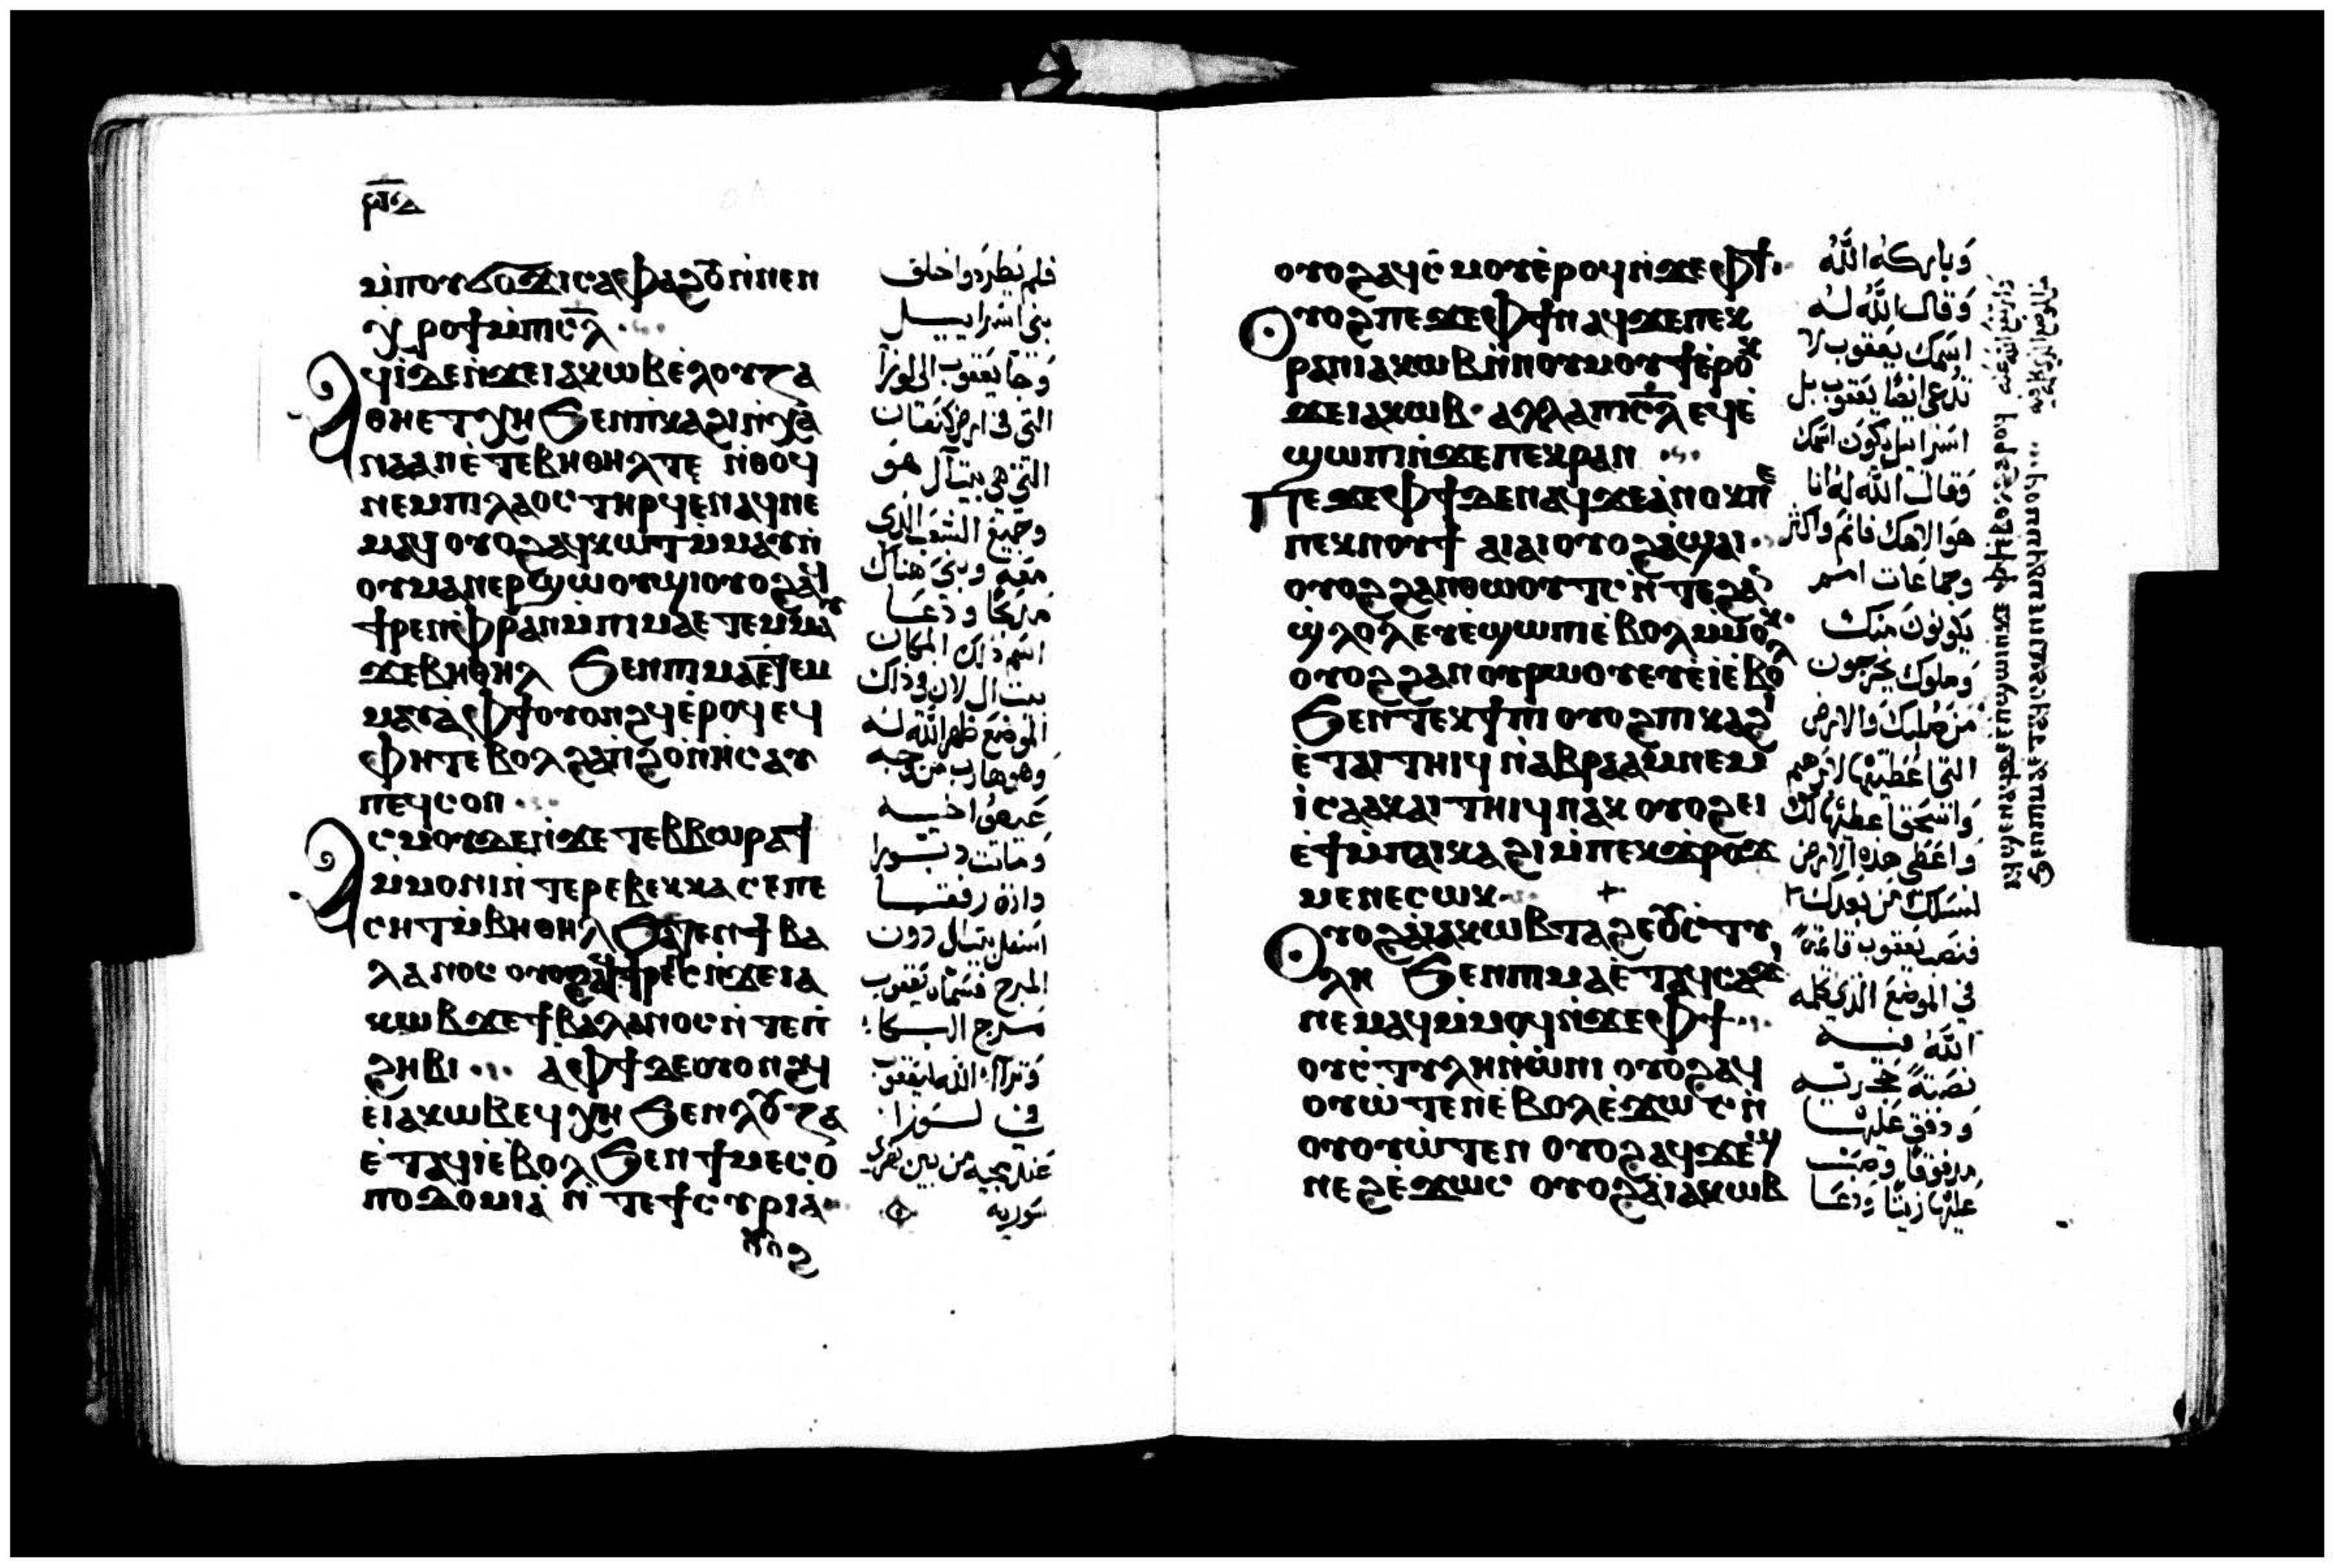 ⲙ̀ⲡⲟⲩϭⲟϫⲓ ⲥⲁⲫⲁϩⲟⲩ ⲛ̀ⲛⲉⲛ
ϣⲏⲣⲓ ⲙ̀ⲡⲓⲥ̅ⲗ̅
ⲁϥⲓ̀ ⲇⲉ ⲛ̀ϫⲉ ⲓⲁⲕⲱⲃ ⲉ̀ⲗⲟⲩⲍⲁ
ⲑⲏ ⲉⲧⲭⲏ ϧⲉⲛ ⲡⲕⲁϩⲓ ⲛ̀ⲭⲁ
ⲛⲁⲁⲛ ⲉ̀ⲧⲉ ⲃⲏⲑⲏⲗ ⲧⲉ ⲛ̀ⲑⲟϥ
ⲛⲉⲙ ⲡⲓⲗⲁⲟⲥ ⲧⲏⲣϥ ⲉⲛⲁϥⲛⲉ
ⲙⲁϥ ⲟⲩⲟϩ ⲁϥⲕⲱⲧ ⲙ̀ⲙⲁⲩ ⲛ̀
ⲟⲩⲙⲁⲛⲉⲣϣⲱⲟⲩϣⲓ ⲟⲩⲟϩ ⲁϥ
ϯⲣⲉⲛ ⲫ̀ⲣⲁⲛ ⲙ̀ⲡⲓⲙⲁ ⲉⲧⲉⲙⲙⲁⲩ
ϫⲉ ⲃⲏⲑⲏⲗ ϧⲉⲛ ⲡⲓⲙⲁ ⲉⲧⲉⲙ
ⲙⲁⲩ ⲁ̀ ⲫϯ ⲟⲩⲟⲛϩϥ ⲉ̀ⲣⲟϥ ⲉϥ
ⲫⲏⲧ ⲉⲃⲟⲗ ϩⲁⲡ̀ϩⲟ ⲛ̀ⲏⲥⲁⲩ
ⲡⲉϥⲥⲟⲛ
ⲁⲥⲙⲟⲩ ⲇⲉ ⲛ̀ϫⲉ ⲧⲉⲃⲃⲱⲣⲁ ϯ
ⲙ̀ⲙⲟⲛⲓ ⲛ̀ⲧⲉ ⲣⲉⲃⲉⲕⲕⲁ ⲥⲉⲡⲉ
ⲥⲏⲧ ⲙ̀ⲃⲏⲑⲏⲗ ϧⲁⲧⲉⲛ ϯⲃⲁ
ⲗⲁⲛⲟⲥ ⲟⲩⲟϩ ⲁϥϯⲣⲉⲛⲥ ⲛ̀ϫⲉ ⲓⲁ
ⲕⲱⲃ ϫⲉ ϯⲃⲁⲗⲁⲛⲟⲥ ⲛ̀ⲧⲉ ⲡ
ϩⲏⲃⲓ ⲁ̀ ⲫϯ ⲇⲉ ⲟⲩⲟⲛϩϥ
ⲉ̀ⲓⲁⲕⲱⲃ ⲉϥⲭⲏ ϧⲉⲛ ⲗⲟⲩⲍⲁ
ⲉ̀ⲧⲁϥⲓ̀ ⲉ̀ⲃⲟⲗ ϧⲉⲛ ϯⲙⲉⲥⲟ
ⲡⲟⲇⲟⲙⲓⲁ ⲛ̀ⲧⲉ ϯⲥⲩⲣⲓⲁ
فلم يطردوا خلف
بنى اسراييل
وجا يعقوب الى لوزا
التى فى ارض كنعان
التى هى بيتآل هو
وجميع الشعب الذى
معه وبنى هناك
مذبحًا ودعا
اسم ذلك المكان
بيت ال لان فى ذلك
الموضع ظهر الله له
وهو هارب من وجه
عيصوا اخيه
وماتت دبورا
داية رفقا
اسفل بيتال دون
المرج فسماه يعقوب
مرج البكا
وترآا الله ليعقوب
فى لوزا
عند مجيه من بين نهرى
سورية
ⲟⲩⲟϩ ⲁϥⲥ̀ⲙⲟⲩ ⲉ̀ⲣⲟϥ ⲛ̀ϫⲉ ⲫϯ
ⲟⲩⲟϩ ⲡⲉϫⲉ ⲫϯ ⲛⲁϥ ϫⲉ ⲡⲉⲕ
ⲣⲁⲛ ⲓⲁⲕⲱⲃ ⲛ̀ⲛⲟⲩⲙⲟⲩϯ ⲉ̀ⲣⲟⲕ
ϫⲉ ⲓⲁⲕⲱⲃ ⲁⲗⲗⲁ ⲡⲓⲥ̅ⲗ̅ ⲉϥⲉ̀
ϣⲱⲡⲓ ⲛ̀ϫⲉ ⲡⲉⲕⲣⲁⲛ
ⲡⲉϫⲉ ⲫϯ ⲇⲉ ⲛⲁϥ ϫⲉ ⲁ̀ⲛⲟⲕ ⲡⲉ
ⲡⲉⲕⲛⲟⲩϯ ⲁⲓⲁⲓ ⲟⲩⲟϩ ⲁ̀ϣⲁⲓ
ⲟⲩⲟϩ ϩⲁⲛⲑⲱⲟⲩⲧⲥ ⲛ̀ⲧⲉ ϩⲁⲛ
ϣ̀ⲗⲟⲗ ⲉⲩⲉ̀ϣⲱⲡⲓ ⲉ̀ⲃⲟⲗ ⲙ̀ⲙⲟⲕ
ⲟⲩⲟϩ ϩⲁⲛⲟⲩⲣⲱⲟⲩ ⲉⲩⲉ̀ⲓ̀ ⲉ̀ⲃⲟⲗ
ϧⲉⲛ ⲧⲉⲕϯⲡⲓ ⲟⲩⲟϩ ⲡⲓⲕⲁϩⲓ
ⲉ̀ⲧⲁⲓⲧⲏⲓϥ ⲛ̀ⲁⲃⲣⲁⲁⲙ ⲛⲉⲙ
ⲓ̀ⲥⲁⲁⲕ ⲁⲓⲧⲏⲓϥ ⲛⲁⲕ ⲟⲩⲟϩ ⲉⲓ
ⲉ̀ϯ ⲙ̀ⲡⲁⲓⲕⲁϩⲓ ⲙ̀ⲡⲉⲕϫⲣⲟϫ
ⲙⲉⲛⲉⲛⲥⲱⲕ
ⲟⲩⲟϩ ⲁ̀ ⲓⲁⲕⲱⲃ ⲧⲁϩⲉ ⲟⲩⲥ̀ⲧⲩ
ⲗⲏ ϧⲉⲛ ⲡⲓⲙⲁ ⲉ̀ⲧⲁϥⲥⲁϫⲓ
ⲛⲉⲙⲁϥ ⲙ̀ⲙⲟϥ ⲛ̀ϫⲉ ⲫϯ
ⲟⲩⲥ̀ⲧⲩⲗⲏ ⲛ̀ⲱ̀ⲛⲓ ⲟⲩⲟϩ ⲁϥ
ⲟⲩⲱ̀ⲧⲉⲛ ⲉ̀ⲃⲟⲗ ⲉ̀ϫⲱⲥ ⲛ̀
ⲟⲩⲟⲩⲱ̀ⲧⲉⲛ ⲟⲩⲟϩ ⲁϥϫⲉϣ
ⲛⲉϩ ⲉ̀ϫⲱⲥ ⲟⲩⲟϩ ⲁ̀ ⲓⲁⲕⲱⲃ
وباركه الله
وقال الله له
اسمك يعقوب لا
تدعى ايضًا يعقوب بل
اسراييل يكون اسمك
فقال الله له انا
هو الاهك فانم واكثر
وجماعات امم
يكونون منك
وملوك يخرجون
من صلبك والارض
التى اعطيتها لابرهيم
واسحق اعطيتها لك
واعطى هذه الارض
لنسلك من بعدك
فنصب يعقوب قايمة
فى الموضع الذى كلمه
الله فيه
نصبة حجرية
ودفق عليها
مدفوقًا وصب
عليها زيتًا ودعا